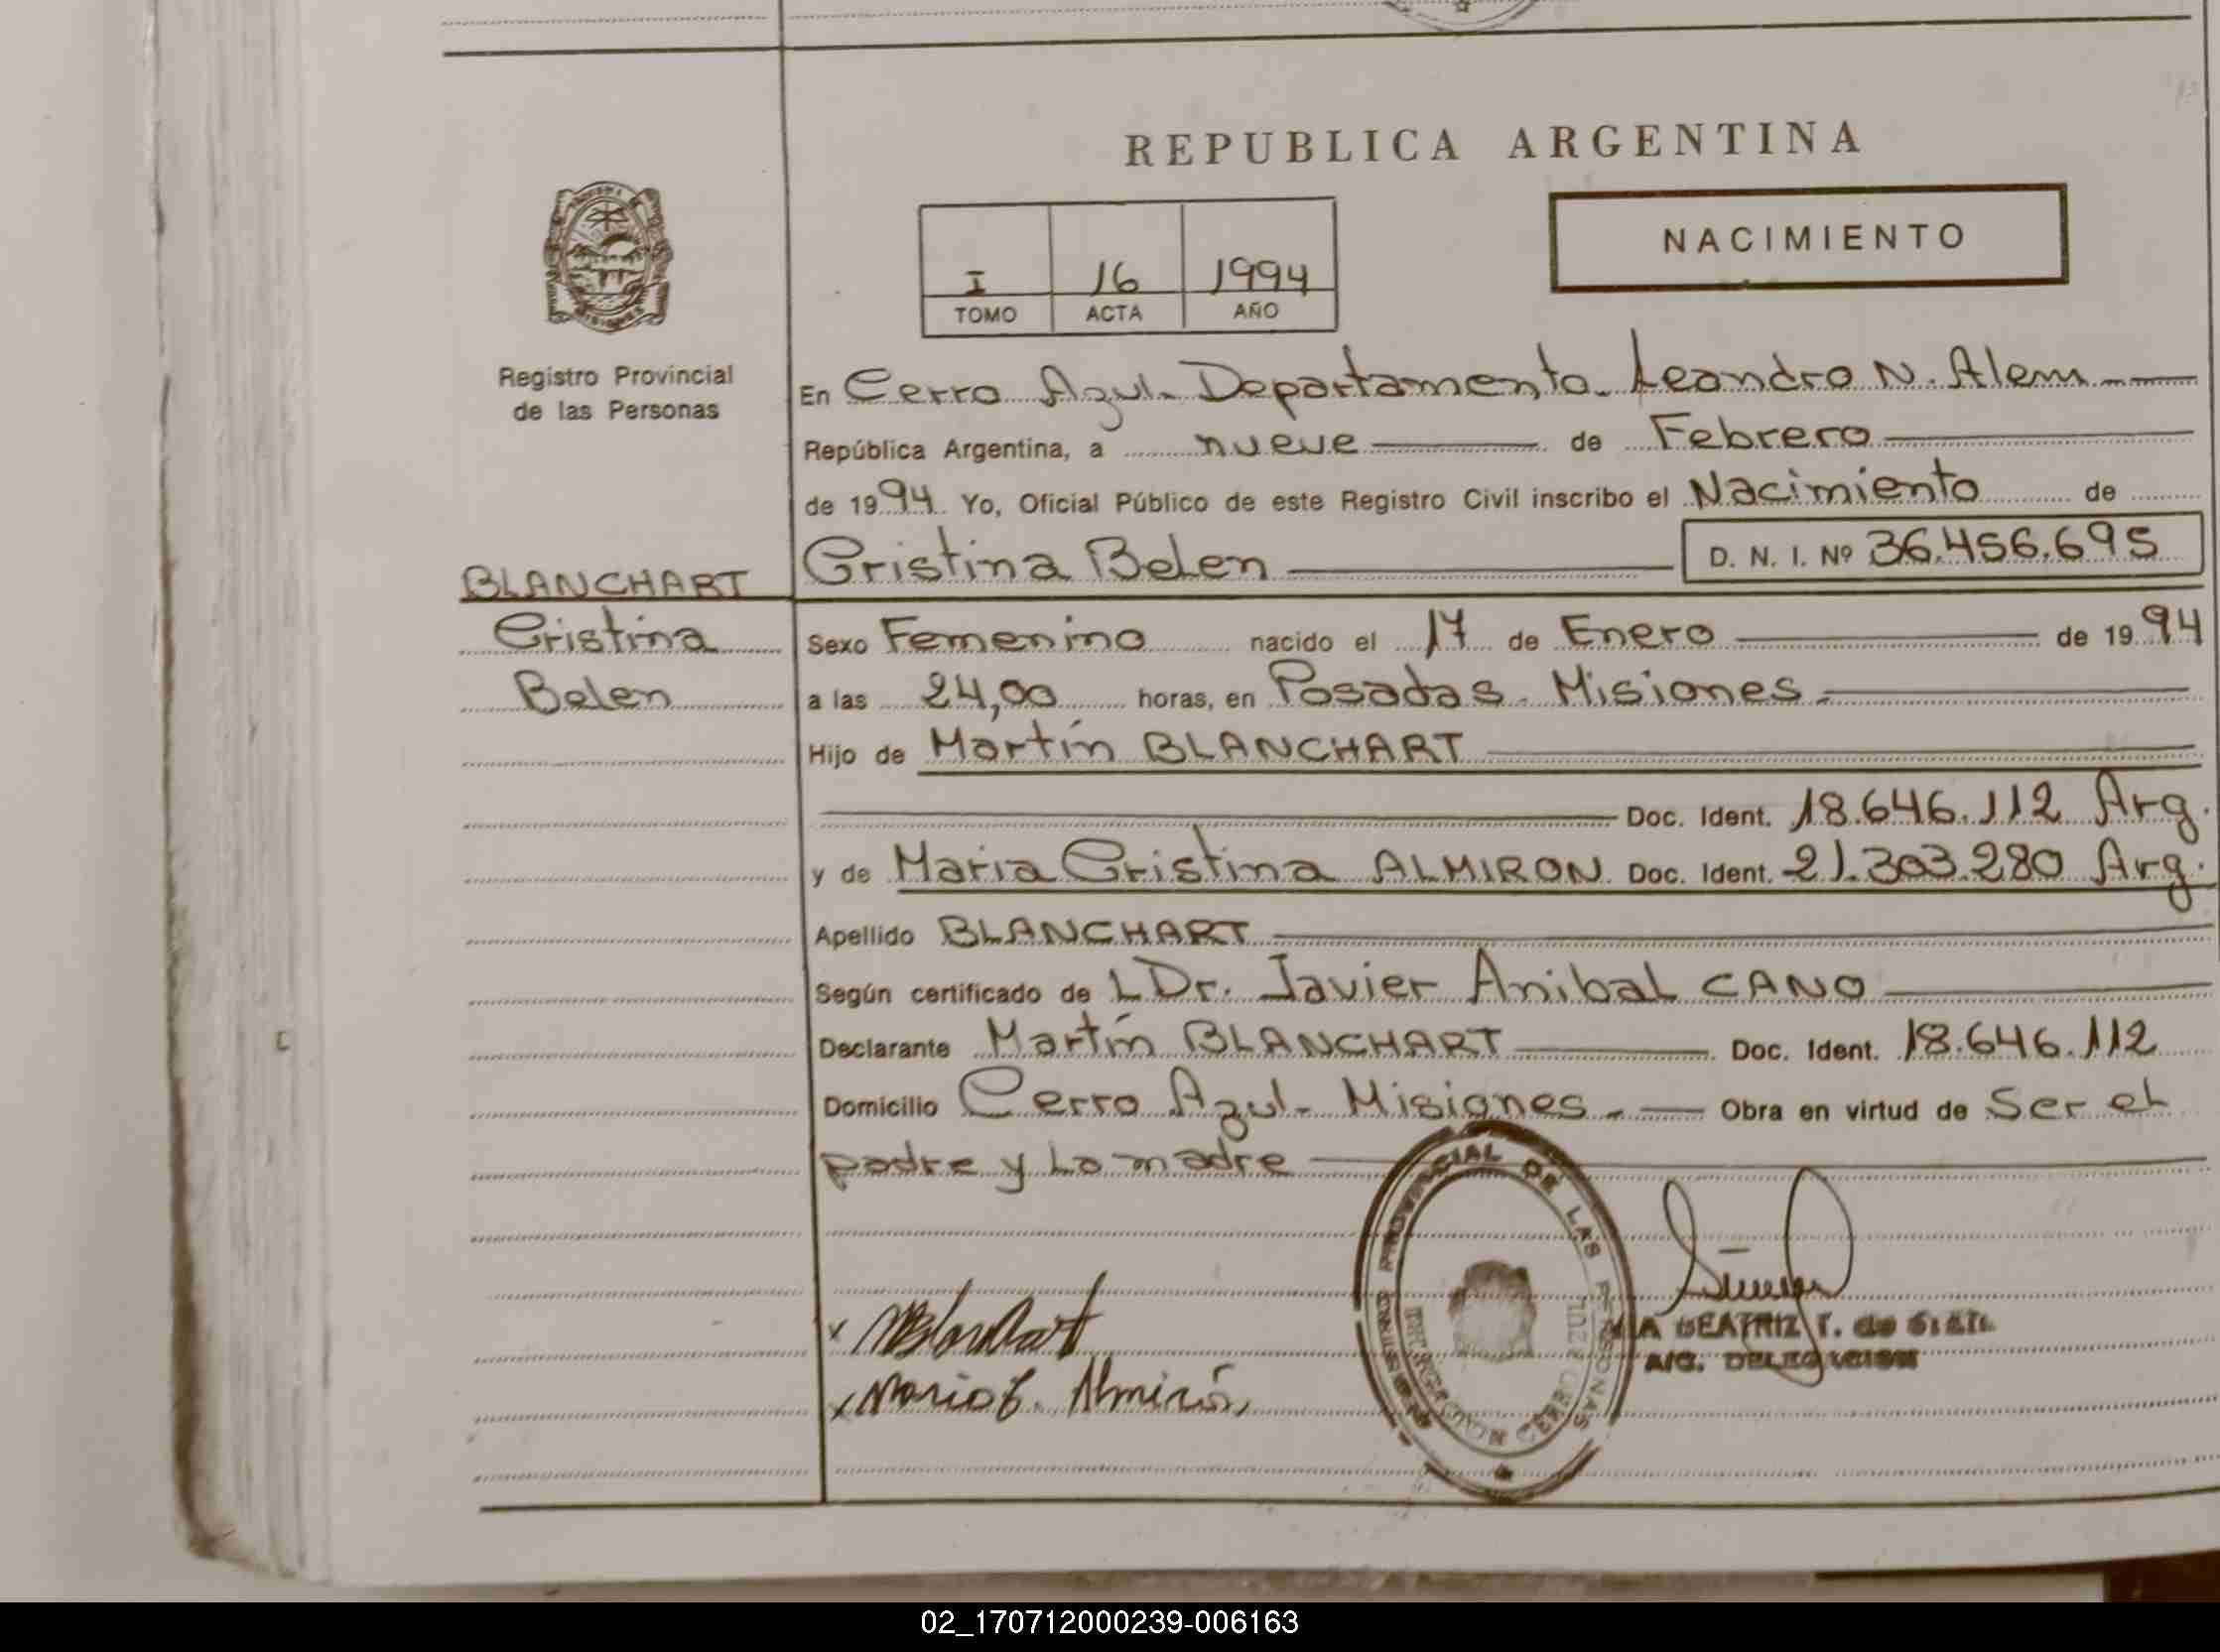 REPUBLICA ARGENTINA
NACIMIENTO
I 16 1994
TOMO ACTA AÑO
Registro Provincial
de las Personas
En Cerro Azul - Departamento - Leandro N. Alem
República Argentina, a nueve de Febrero
de 1994 Yo, Oficial Público de este Registro Civil inscribo el Nacimiento de
Cristina Belen D. N. I. Nº 36.456.695
BLANCHART
Cristina
Belen
Sexo Femenino nacido el 17 de Enero de 1994
a las 24,00 horas, en Posadas - Misiones -
Hijo de Martín BLANCHART
Doc. Ident. 18.646.112 Arg.
y de Maria Cristina ALMIRON Doc. Ident. 21.303.280 Arg.
Apellido BLANCHART
Según certificado de L Dr. Javier Anibal CANO
Declarante Martín BLANCHART Doc. Ident. 18.646.112
Domicilio Cerro Azul - Misiones - Obra en virtud de Ser el
padre y La madre
PROVINCIAL DE LAS PERSONAS
DELEGACION CERRO AZUL
MBlanchart
BEATRIZ T. de
A/C. DELEGACION
Maria C. Almirón
02_170712000239-006163